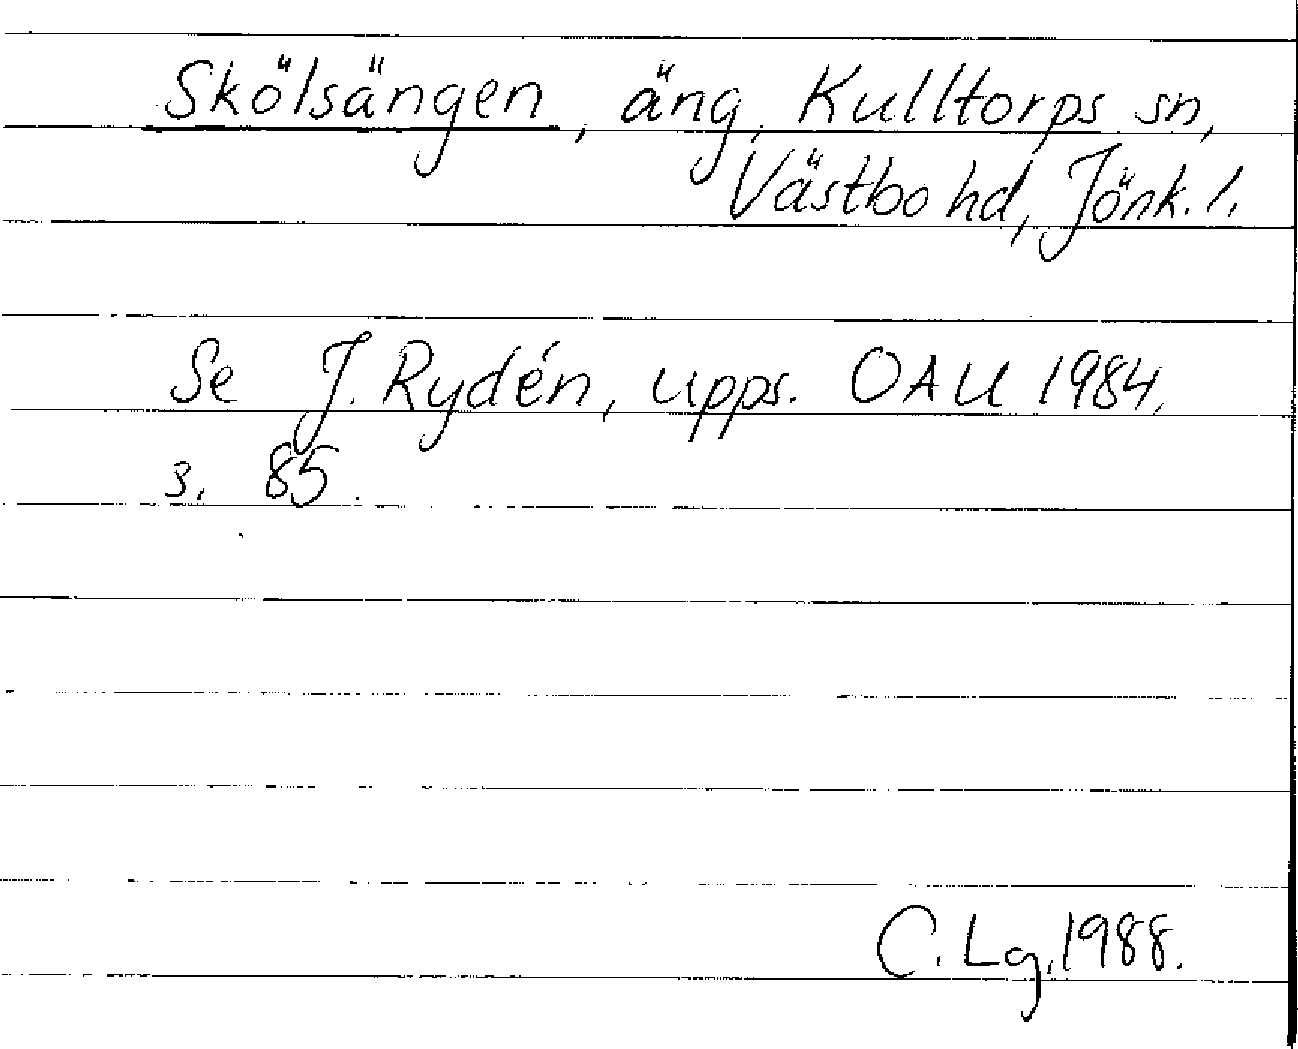 Skölsängen, äng, Kulltorps sn,
Västbo hd, Jönk. l.
Se J. Rydén, upps. OAU 1984,
s. 85.
C. Lg, 1988.